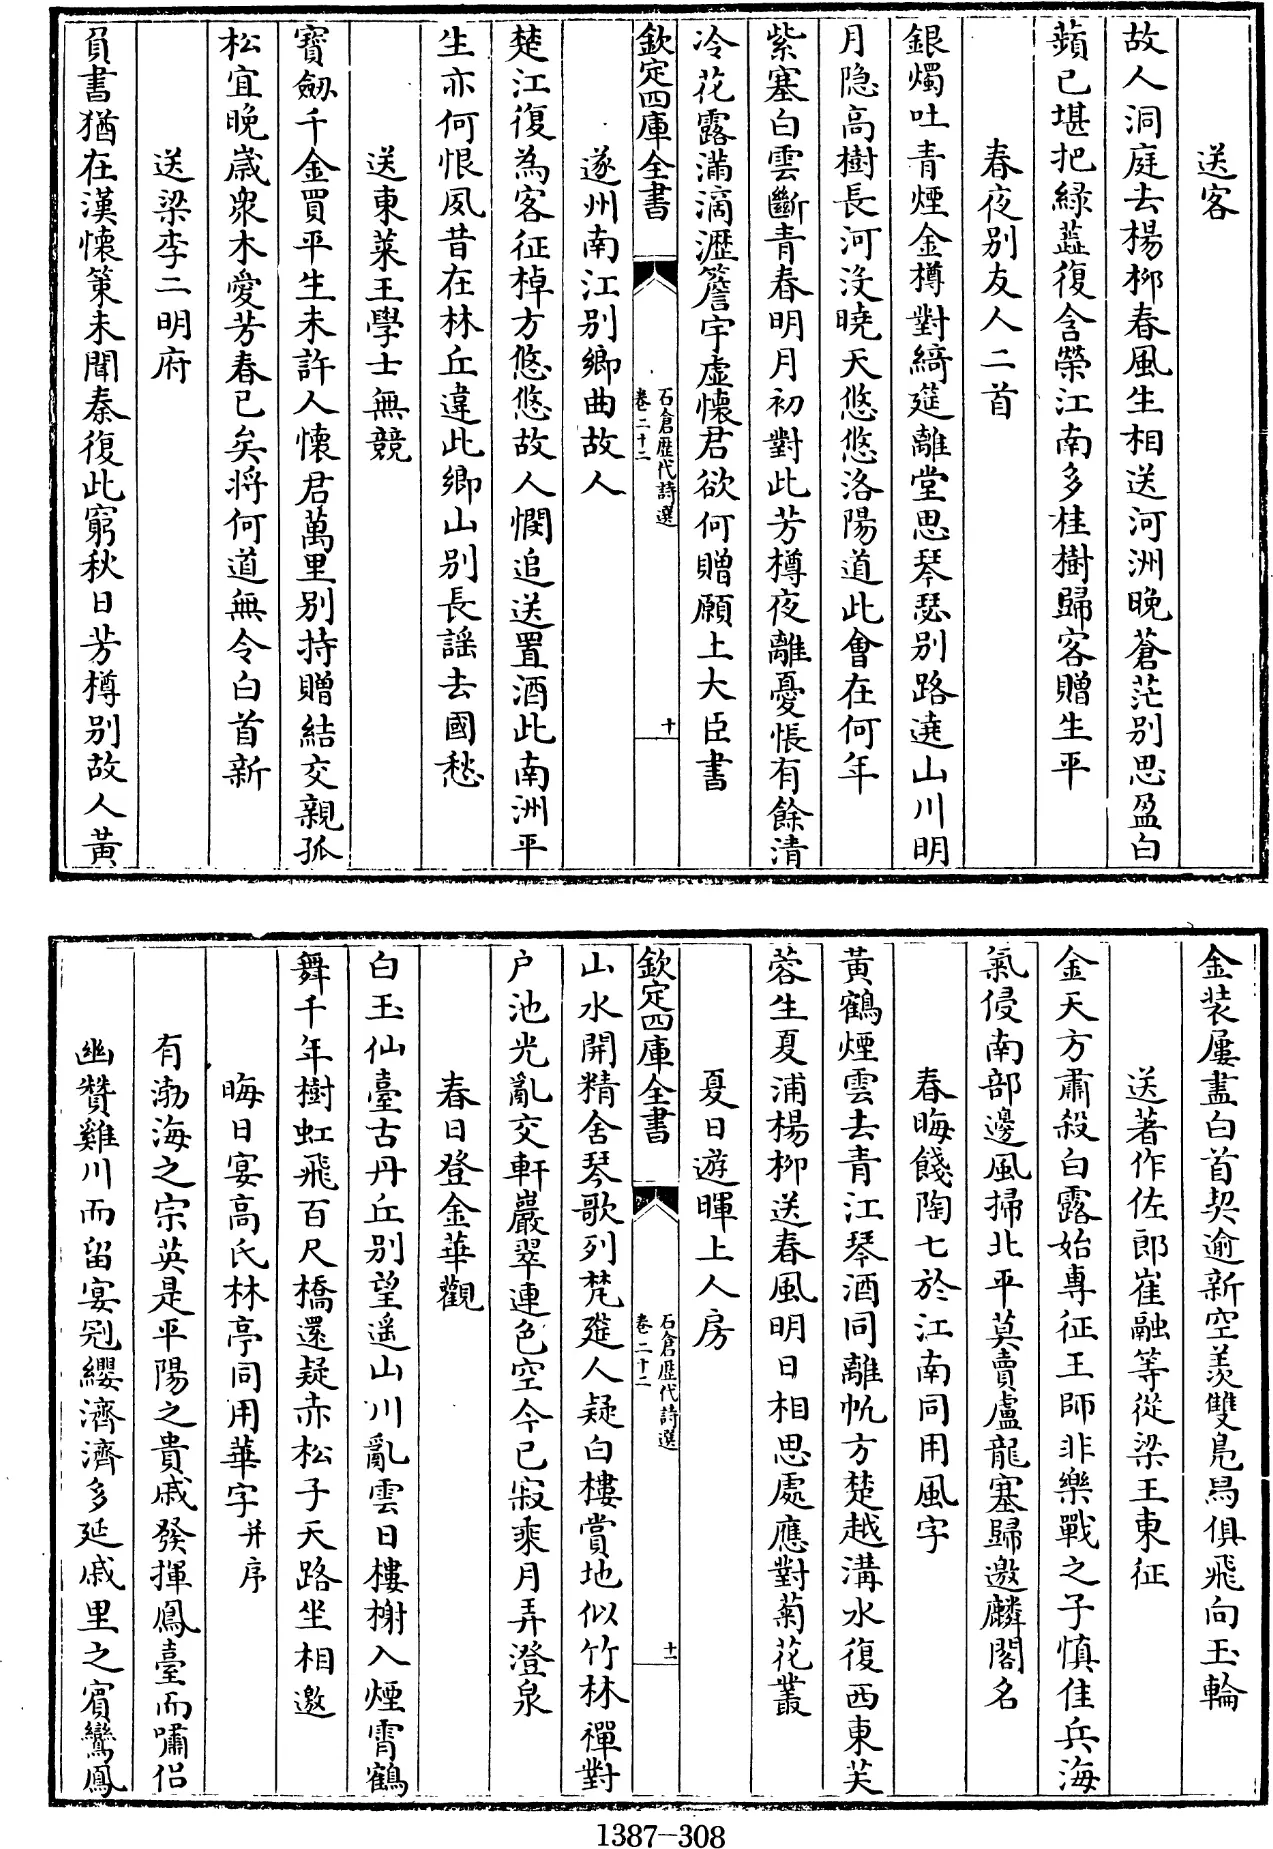 送客
故人洞庭去楊柳春風生相送河洲晚蒼茫别思盈白
蘋已堪把緑芷復含榮江南多桂樹歸客贈生平
春夜别友人二首
銀燭吐青煙金樽對綺筵離堂思琴瑟别路遶山川明
月隐高樹長河没曉天悠悠洛陽道此會在何年
紫塞白雲斷青春明月初對此芳樽夜離憂悵有餘清
冷花露滿滴瀝簷宇虚懷君欲何贈願上大臣書
欽定四庫全書
石倉歷代詩選
卷二十二
十
遂州南江别鄉曲故人
楚江復為客征棹方悠悠故人憫追送置酒此南洲平
生亦何恨夙昔在林丘違此鄉山别長謡去國愁
送東萊王學士無競
寶劒千金買平生未許人懷君萬里别持贈結交親孤
松宜晚歲衆木愛芳春已矣将何道無令白首新
送梁李二明府
負書猶在漢懷策未聞秦復此窮秋日芳樽别故人黄
金装屢盡白首契逾新空羨雙鳧舄俱飛向玉輪
送著作佐郎崔融等從梁王東征
金天方肅殺白露始專征王師非樂戰之子慎佳兵海
氣侵南部邊風掃北平莫賣盧龍塞歸邀麟閣名
春晦餞陶七於江南同用風字
黄鶴煙雲去青江琴酒同離帆方楚越溝水復西東芙
蓉生夏浦楊柳送春風明日相思處應對菊花叢
夏日遊暉上人房
欽定四庫全書
石倉歷代詩選
卷二十二
十一
山水開精舍琴歌列梵筵人疑白樓賞地似竹林禪對
户池光亂交軒巖翠連色空今已寂乘月弄澄泉
春日登金華觀
白玉仙臺古丹丘别望遥山川亂雲日樓榭入煙霄鶴
舞千年樹虹飛百尺橋還疑赤松子天路坐相邀
晦日宴高氏林亭同用華字并序
有渤海之宗英是平陽之貴戚發揮鳳臺而嘯侣
幽贊雞川而留宴冠纓濟濟多延戚里之賓鸞鳳
1387-308